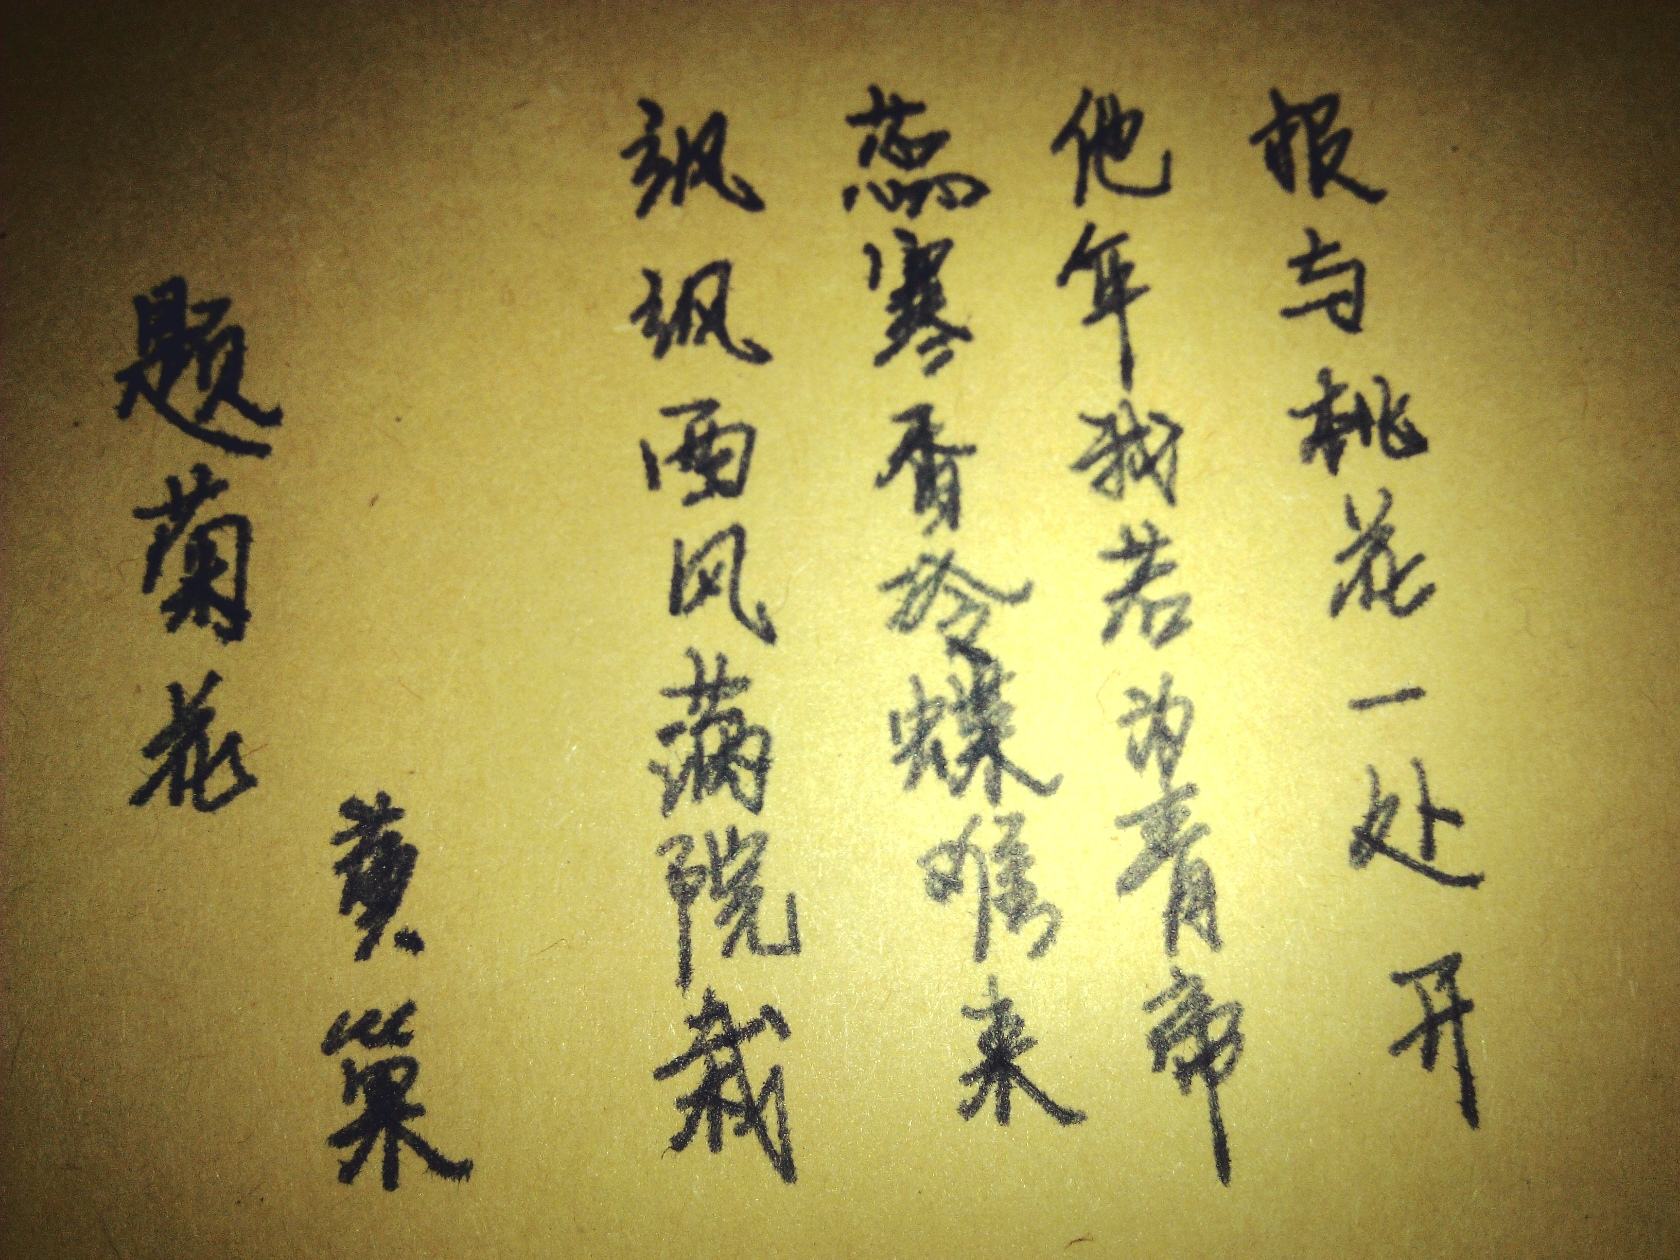 题菊花
黄巢
飒飒西风满院栽
蕊寒香冷蝶难来
他年我若为青帝
报与桃花一处开